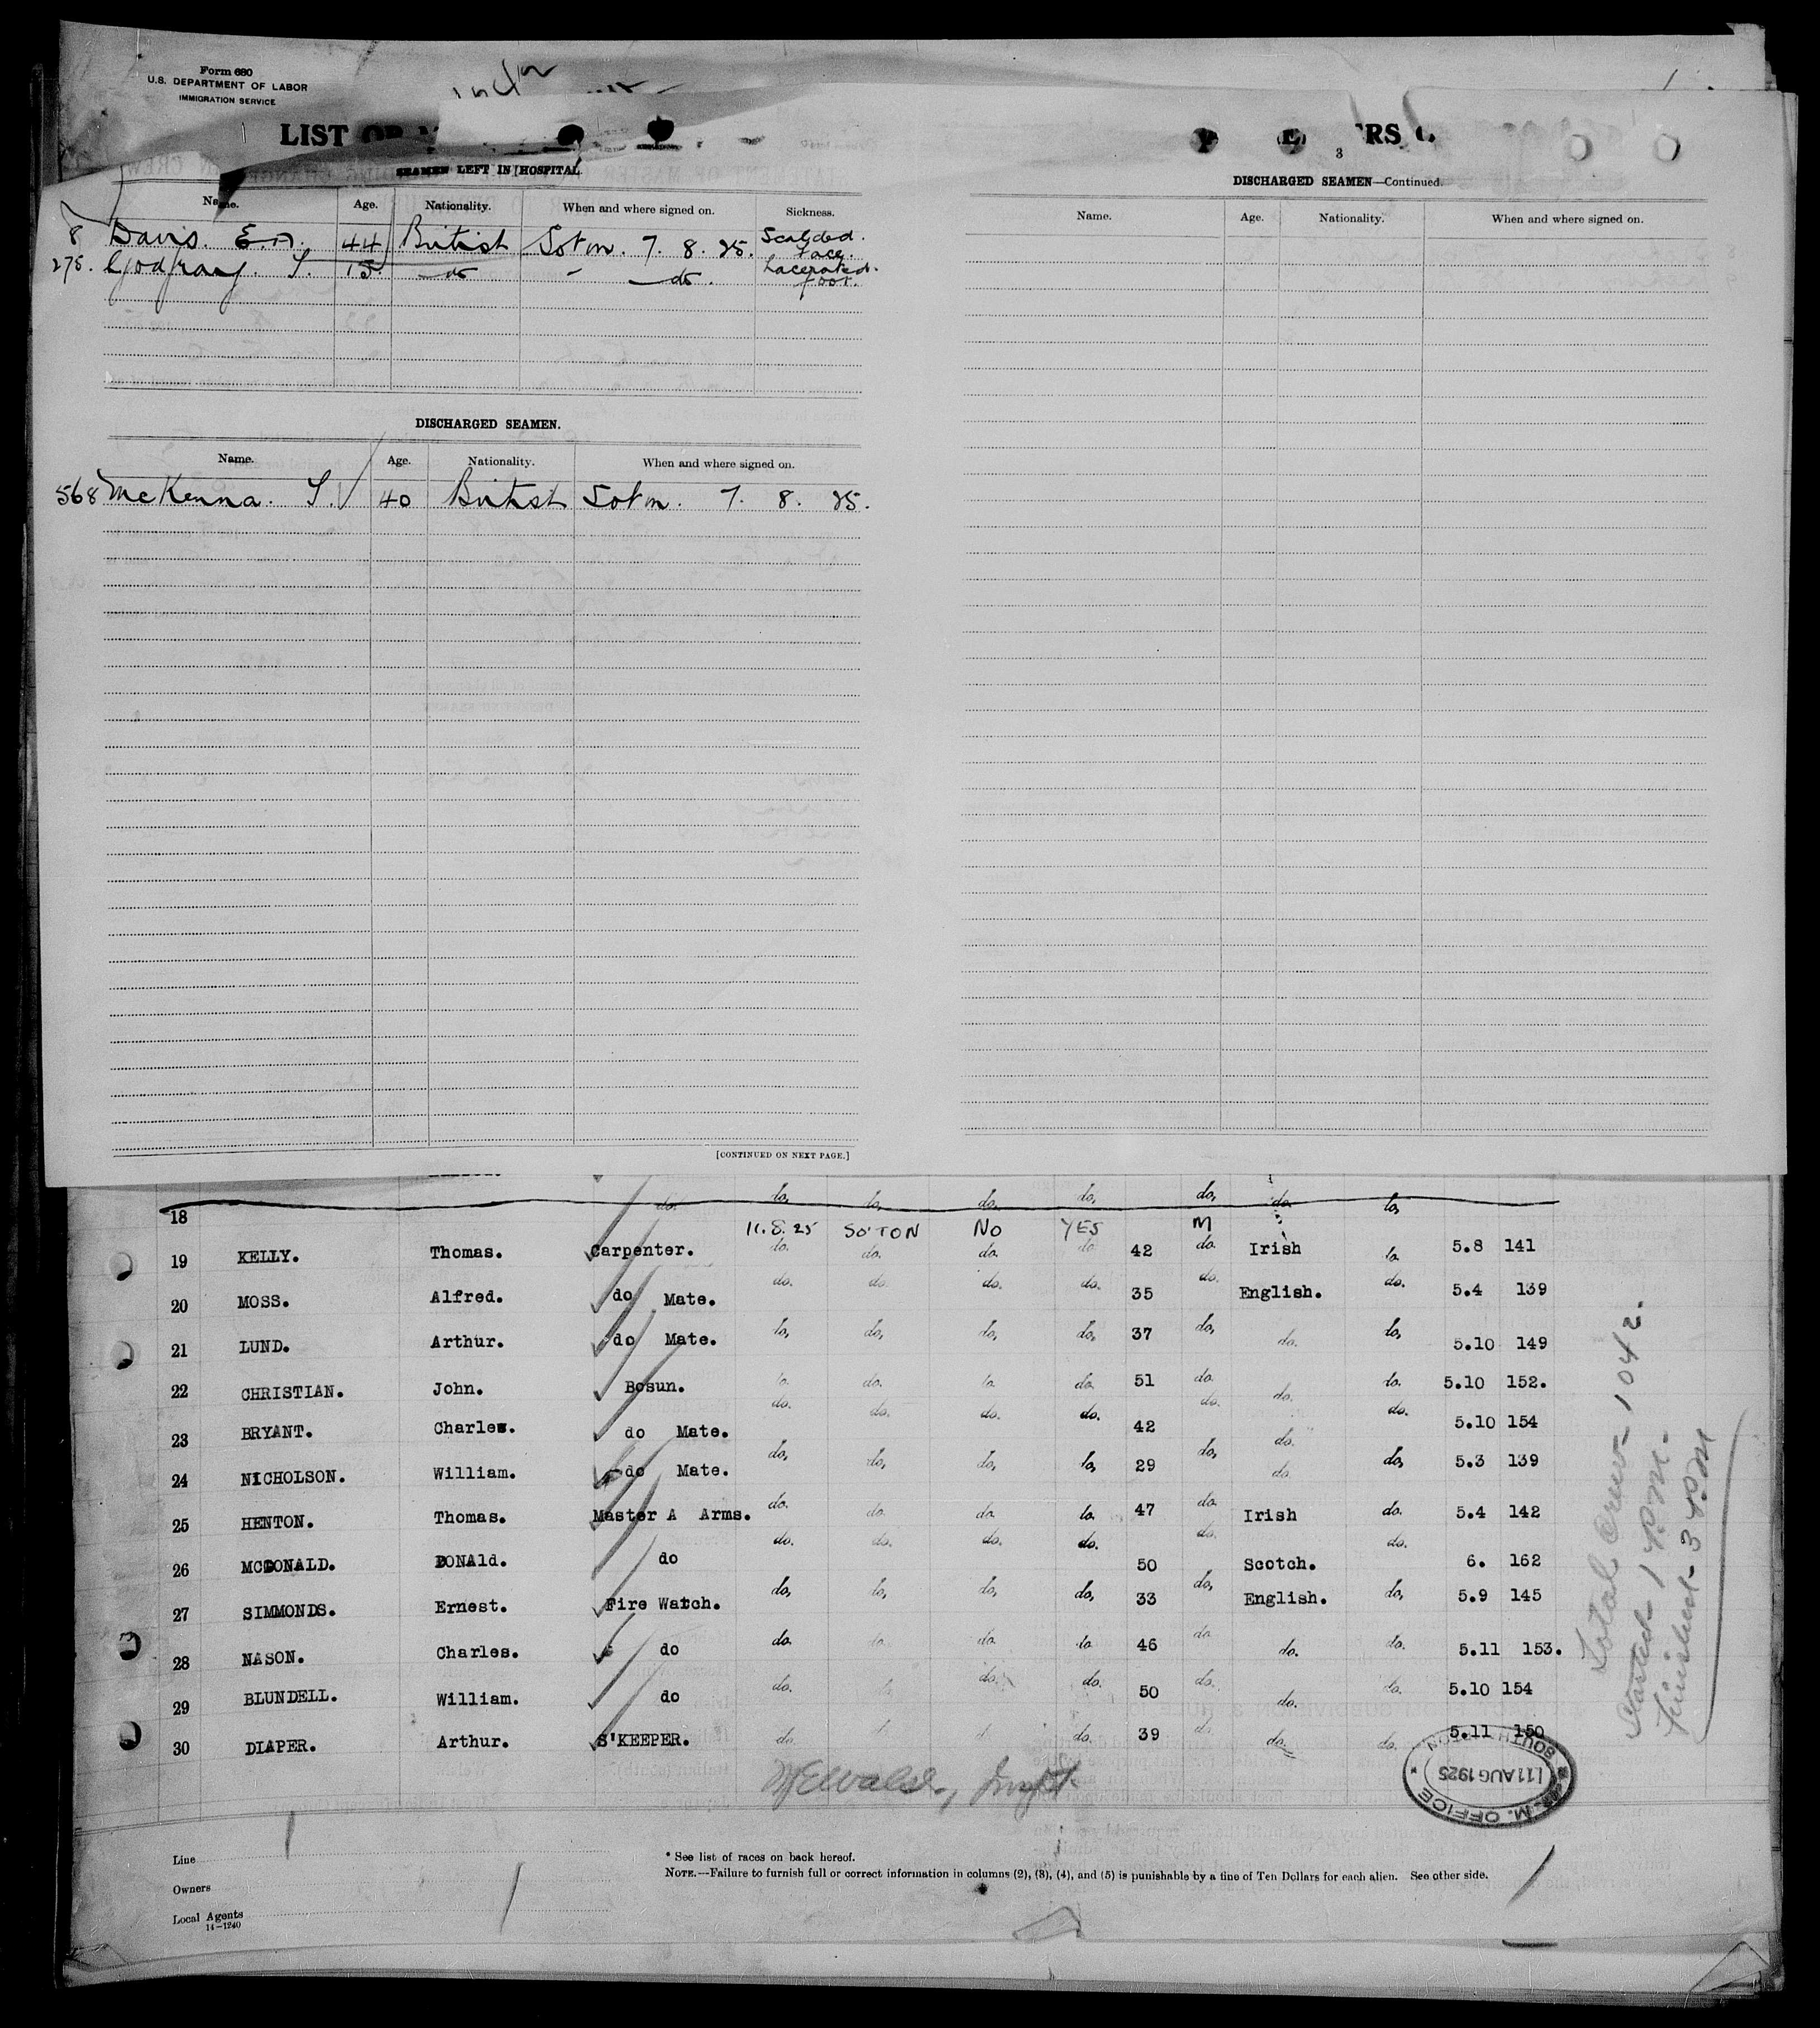 Form 680
U.S. DEPARTMENT OF LABOR
IMMIGRATION SERVICE
LIST
SEAMEN LEFT IN HOSPITAL.
Name. Age. Nationality. When and where signed on. Sickness.
8 Davis. E.A. 44 British Soton. 7. 8. 25. Scalded. face.
275. Godfray. S. 15 do do. Lacerated. foot.
DISCHARGED SEAMEN.
Name. Age. Nationality. When and where signed on.
568 McKenna. S. 40 British Soton. 7. 8. 25.
[CONTINUED ON NEXT PAGE.]
3
DISCHARGED SEAMEN—Continued.
Name. Age. Nationality. When and where signed on.
do. do, do, do, do, do, do. do,
18 11.8.25 SO'TON NO YES M
19 KELLY. Thomas. Carpenter. do. do. do. do 42 do. Irish do. 5.8 141
20 MOSS. Alfred. do Mate. do. do. do. do. 35 do. English. do. 5.4 139
21 LUND. Arthur. do Mate. do, do, do, do, 37 do, do. do, 5.10 149
22 CHRISTIAN. John. Bosun. do. do. do. do. 51 do. do. do. 5.10 152.
23 BRYANT. Charles. do Mate. do. do. do. do. 42 do. do. do. 5.10 154
24 NICHOLSON. William. do Mate. do, do, do, do, 29 do, do. do, 5.3 139
25 HENTON. Thomas. Master A Arms. do. do. do. do. 47 do. Irish do. 5.4 142
26 MCDONALD. DONAld. do do. do. do. do. 50 do. Scotch. do. 6. 162
27 SIMMONDS. Ernest. Fire Watch. do, do, do, do, 33 do, English. do, 5.9 145
28 NASON. Charles. do do. do. do. do 46 do. do. do. 5.11 153.
29 BLUNDELL. William. do do. do. do. do. 50 do. do. do. 5.10 154
30 DIAPER. Arthur. S'KEEPER. do. do. 39 do. do. do. 5.11 150
Total Crew - 1042.
Started - 1 P.M. -
Finished - 3 P.M
SOUTHAMPTON
11 AUG 1925
M. OFFICE
Line
Owners
Local Agents
14—1240
* See list of races on back hereof.
NOTE.—Failure to furnish full or correct information in columns (2), (3), (4), and (5) is punishable by a fine of Ten Dollars for each alien. See other side.